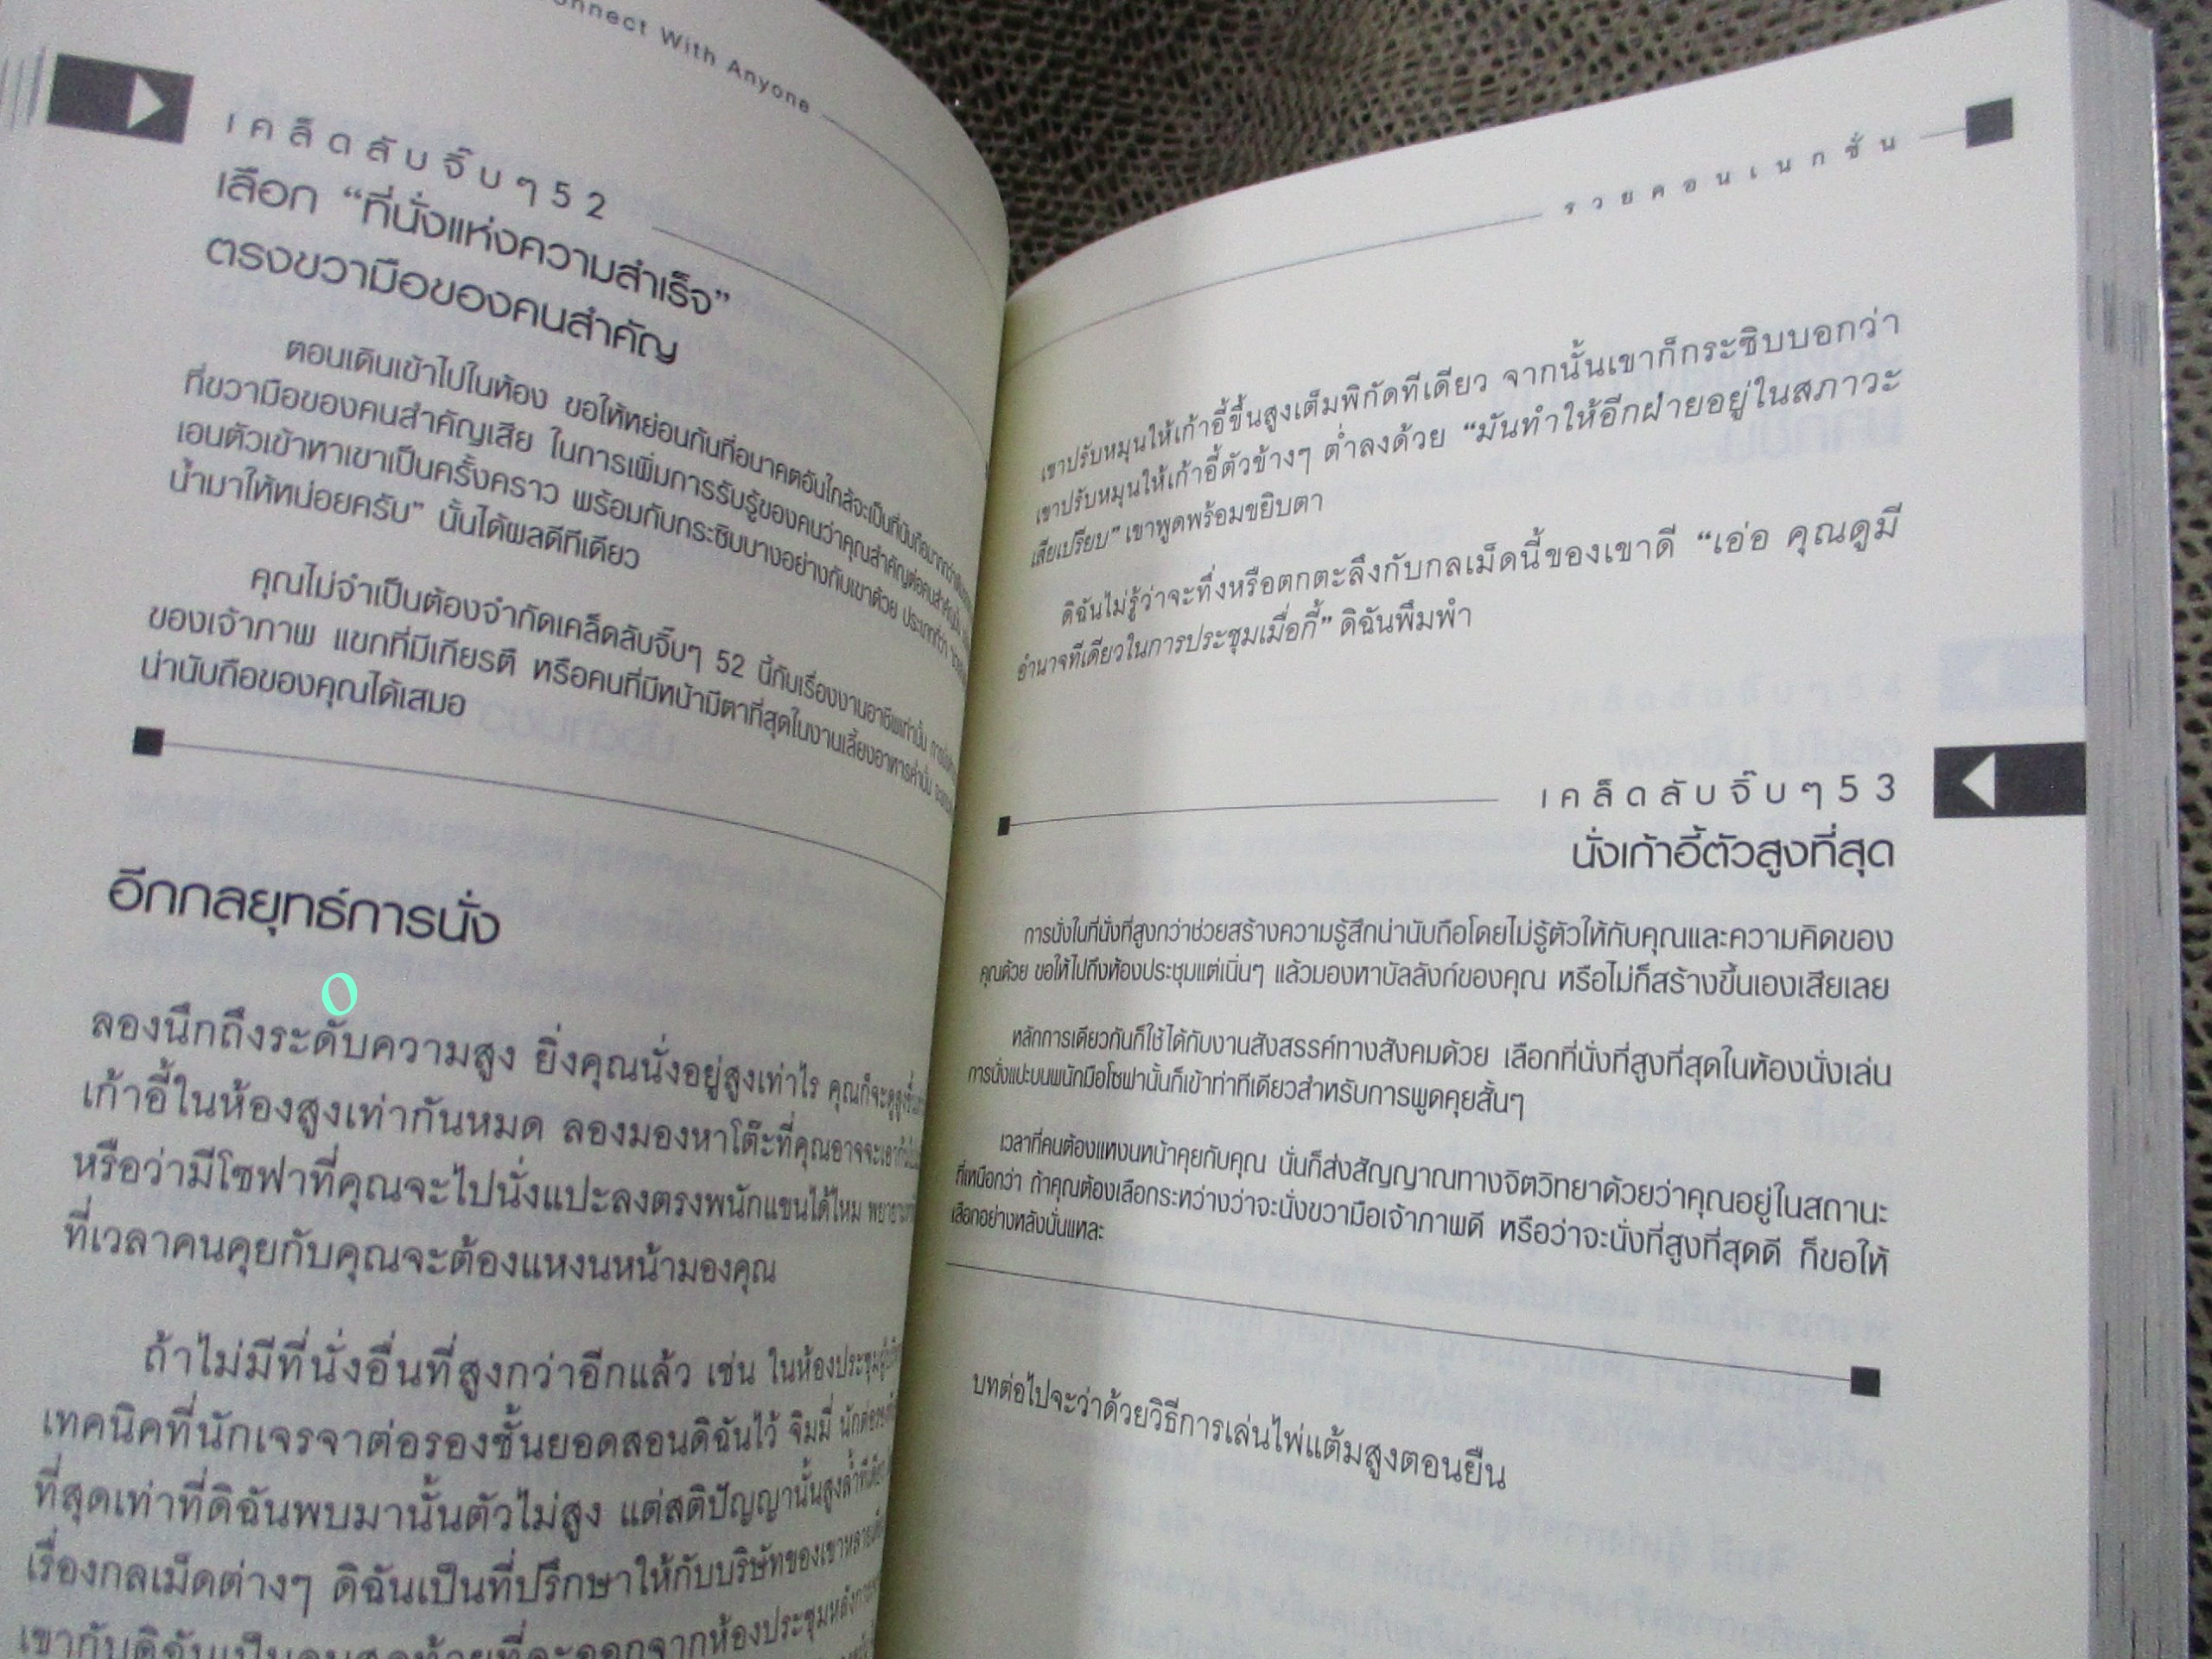 onnect With Anyone
เคล็ดลับจิ๊บๆ 52
เลือก “ที่นั่งแห่งความสำเร็จ”
ตรงขวามือของคนสำคัญ
ตอนเดินเข้าไปในห้อง ขอให้หย่อนก้นที่อนาคตอันใกล้จะเป็นที่นับถือมากกว่า
ที่ขวามือของคนสำคัญเสีย ในการเพิ่มการรับรู้ของคนว่าคุณสำคัญต่อคนสำคัญนั้น
เอนตัวเข้าหาเขาเป็นครั้งคราว พร้อมกับกระซิบบางอย่างกับเขาด้วย ประเภทที่ว่า
น้ำมาให้หน่อยครับ” นั้นได้ผลดีทีเดียว
คุณไม่จำเป็นต้องจำกัดเคล็ดลับจิ๊บๆ 52 นี้กับเรื่องงานอาชีพเท่านั้น
ของเจ้าภาพ แขกที่มีเกียรติ หรือคนที่มีหน้ามีตาที่สุดในงานเลี้ยงอาหารค่ำนั้น
น่านับถือของคุณได้เสมอ
อีกกลยุทธ์การนั่ง
ลองนึกถึงระดับความสูง ยิ่งคุณนั่งอยู่สูงเท่าไร คุณก็จะดูสูงขึ้น
เก้าอี้ในห้องสูงเท่ากันหมด ลองมองหาโต๊ะที่คุณอาจจะเอาก้น
หรือว่ามีโซฟาที่คุณจะไปนั่งแปะลงตรงพนักแขนได้ไหม
ที่เวลาคนคุยกับคุณจะต้องแหงนหน้ามองคุณ
ถ้าไม่มีที่นั่งอื่นที่สูงกว่าอีกแล้ว เช่น ในห้องประชุม
เทคนิคที่นักเจรจาต่อรองชั้นยอดสอนดิฉันไว้ จิมมี่ นักต่อรอง
ที่สุดเท่าที่ดิฉันพบมานั้นตัวไม่สูง แต่สติปัญญานั้นสูงล้ำทีเดียว
เรื่องกลเม็ดต่างๆ ดิฉันเป็นที่ปรึกษาให้กับบริษัทของเขาหลาย
เขากับดิฉันเป็นคนสุดท้ายที่จะออกจากห้องประชุมหลังการ
รวยคอนเนกชั่น
เขาปรับหมุนให้เก้าอี้ขึ้นสูงเต็มพิกัดทีเดียว จากนั้นเขาก็กระซิบบอกว่า
เขาปรับหมุนให้เก้าอี้ตัวข้างๆ ต่ำลงด้วย “มันทำให้อีกฝ่ายอยู่ในสภาวะ
เสียเปรียบ” เขาพูดพร้อมขยิบตา
ดิฉันไม่รู้ว่าจะทึ่งหรือตกตะลึงกับกลเม็ดนี้ของเขาดี “เอ่อ คุณดูมี
อำนาจทีเดียวในการประชุมเมื่อกี้” ดิฉันพึมพำ
เคล็ดลับจิ๊บๆ 53
นั่งเก้าอี้ตัวสูงที่สุด
การนั่งในที่นั่งที่สูงกว่าช่วยสร้างความรู้สึกน่านับถือโดยไม่รู้ตัวให้กับคุณและความคิดของ
คุณด้วย ขอให้ไปถึงห้องประชุมแต่เนิ่นๆ แล้วมองหาบัลลังก์ของคุณ หรือไม่ก็สร้างขึ้นเองเสียเลย
หลักการเดียวกันก็ใช้ได้กับงานสังสรรค์ทางสังคมด้วย เลือกที่นั่งที่สูงที่สุดในห้องนั่งเล่น
การนั่งแปะบนพนักมือโซฟานั้นก็เข้าท่าทีเดียวสำหรับการพูดคุยสั้นๆ
เวลาที่คนต้องแหงนหน้าคุยกับคุณ นั่นก็ส่งสัญญาณทางจิตวิทยาด้วยว่าคุณอยู่ในสถานะ
ที่เหนือกว่า ถ้าคุณต้องเลือกระหว่างว่าจะนั่งขวามือเจ้าภาพดี หรือว่าจะนั่งที่สูงที่สุดดี ก็ขอให้
เลือกอย่างหลังนั่นแหละ
บทต่อไปจะว่าด้วยวิธีการเล่นไพ่แต้มสูงตอนยืน